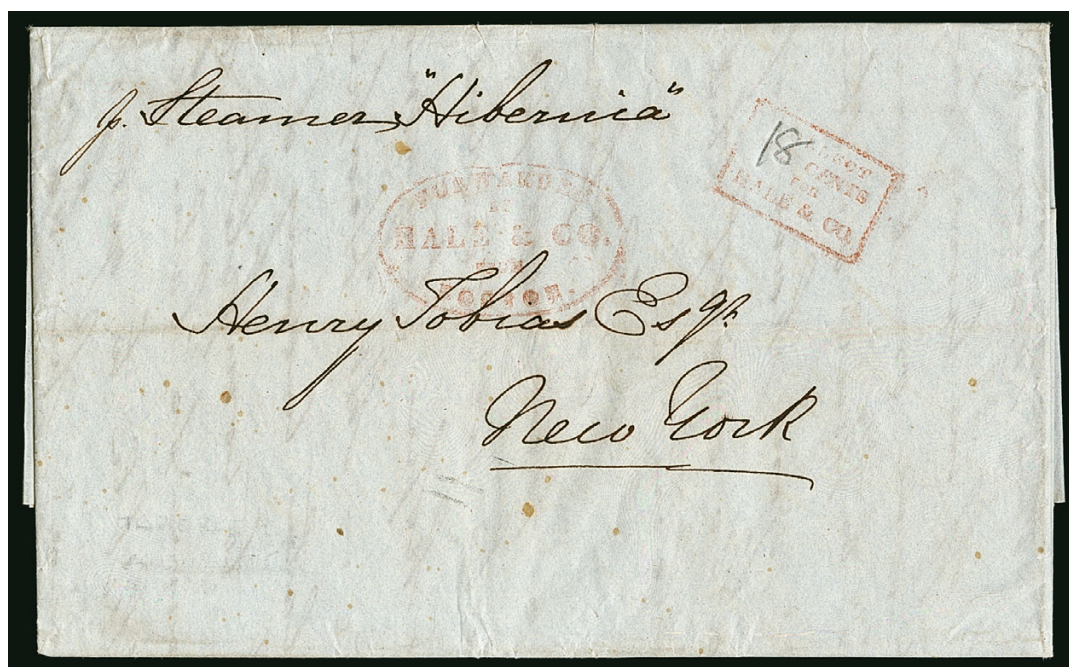 p. Steamer "Hibernia"
18
COLLECT
CENTS
FOR
HALE & CO.
FORWARDED
BY
HALE & CO.
FROM
BOSTON.
Henry Tobias Esqr.
New York